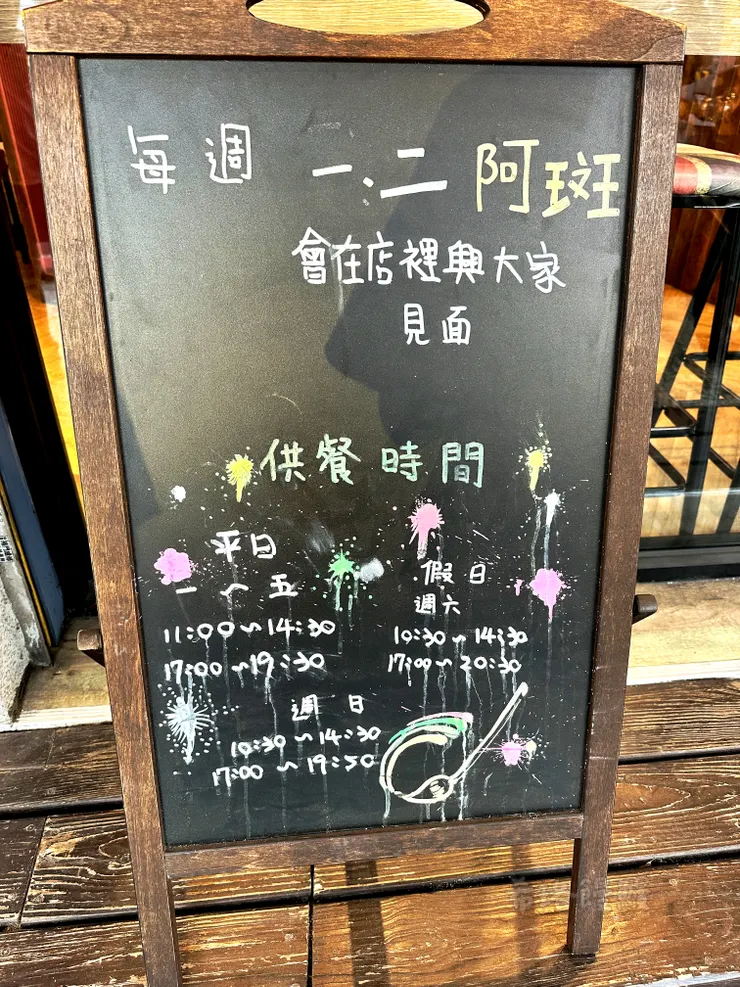 每週 一.二 阿斑
會在店裡興大家
見面
供餐時間
平日
一~五
11:00~14:30
17:00~19:30
假日
週六
10:30~14:30
17:00~20:30
週日
10:30~14:30
17:00~19:30